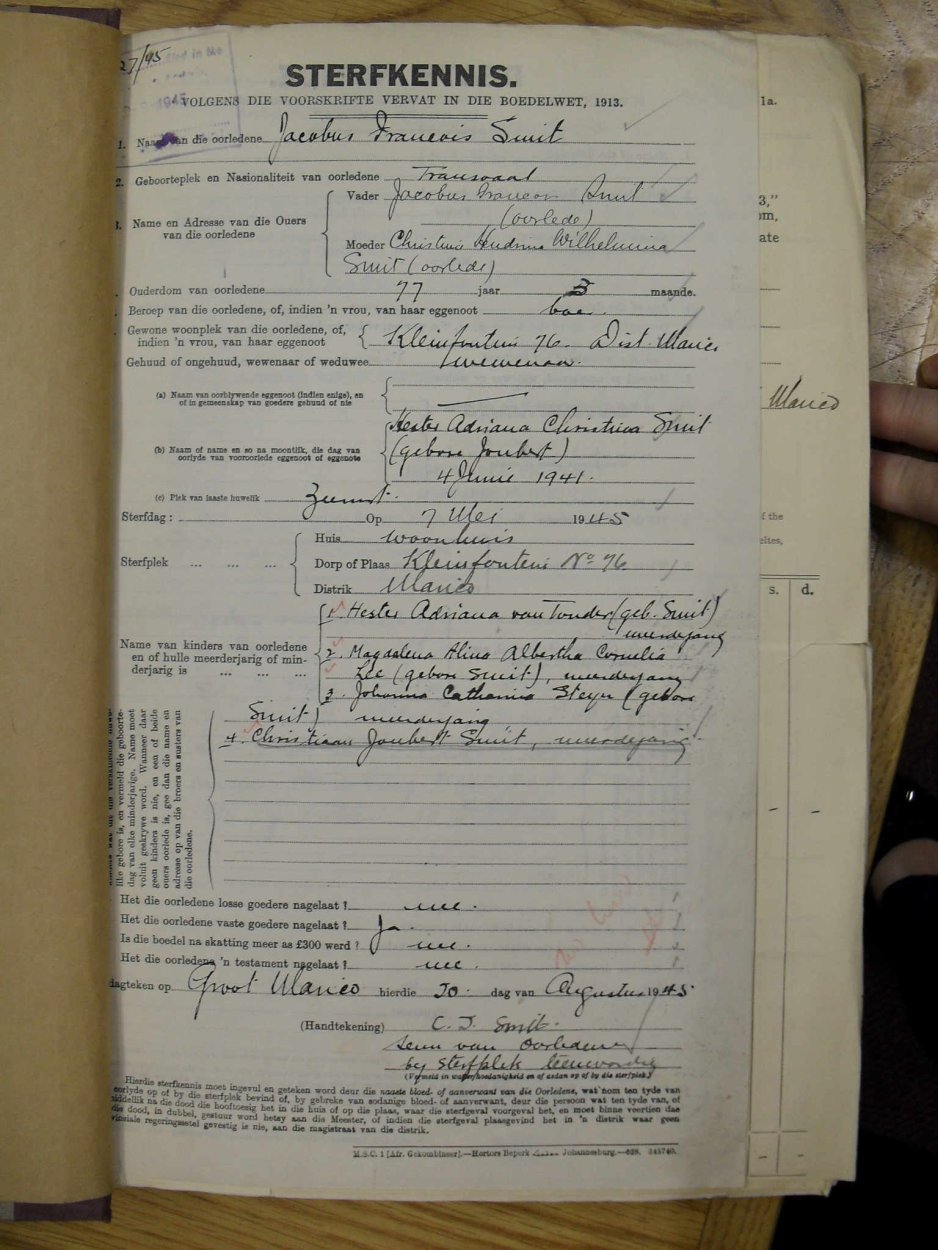 27/45
1945
STERFKENNIS.
VOLGENS DIE VOORSKRIFTE VERVAT IN DIE BOEDELWET, 1913.
1. Naam van die oorledene Jacobus Francois Smit
2. Geboorteplek en Nasionaliteit van oorledene Transvaal
3. Name en Adresse van die Ouers van die oorledene
Vader Jacobus Francois Smit
(oorlede)
Moeder Christina Hendrina Wilhelmina
Smit (oorlede)
Ouderdom van oorledene 77 jaar 3 maande.
Beroep van die oorledene, of, indien 'n vrou, van haar eggenoot boer.
Gewone woonplek van die oorledene, of,
indien 'n vrou, van haar eggenoot
Kleinfontein 76. Dist. Marico
Gehuud of ongehuud, wewenaar of weduwee wewenaar.
(a) Naam van oorblywende eggenoot (indien enige), en
of in gemeenskap van goedere gehuud of nie
(b) Naam of name en so na moontlik, die dag van
oorlyde van vooroorlede eggenoot of eggenote
Hester Adriana Christina Smit
(gebore Joubert)
4 Junie 1941.
(c) Plek van laaste huwelik Zeerust.
Sterfdag: Op 7 Mei 1945
Sterfplek ... ... ...
Huis woonhuis
Dorp of Plaas Kleinfontein No 76
Distrik Marico
Name van kinders van oorledene
en of hulle meerderjarig of min-
derjarig is ... ... ...
1. Hester Adriana van Tonder (geb. Smit)
meerderjarig
2. Magdalena Alina Albertha Cornelia
Lee (gebore Smit), meerderjarig
3. Johanna Catharina Steyn (gebore
Smit) meerderjarig
4. Christiaan Joubert Smit, meerderjarig.
like gebore is, en vermeld die geboorte-
dag van elke minderjarige. Name moet
voluit geskrywe word. Wanneer daar
geen kinders is nie, en een of beide
ouers oorlede is, gee dan die name en
adresse op van die broers en susters van
die oorledene.
Het die oorledene losse goedere nagelaat? nee.
Het die oorledene vaste goedere nagelaat? Ja.
Is die boedel na skatting meer as £300 werd? nee.
Het die oorledene 'n testament nagelaat? nee.
dagteken op Groot Marico hierdie 30 dag van Augustus 1945
(Handtekening) C. J. Smit.
seun van oorledene
by sterfplek teenwoordig
(Vermeld in watter hoedanigheid en of aldan op of by die sterfplek)
Hierdie sterfkennis moet ingevul en geteken word deur die naaste bloed- of aanverwant van die Oorledene, wat nom ten tyde van
oorlyde op of by die sterfplek bevind of, by gebreke van sodanige bloed- of aanverwant, deur die persoon wat ten tyde van, of
middellik na die dood die hooftoesig het in die huis of op die plaas, waar die sterfgeval voorgeval het, en moet binne veertien dae
die dood, in dubbel, gestuur word hetsy aan die Meester, of indien die sterfgeval plaasgevind het in 'n distrik waar geen
vinsiale regeringssetel gevestig is nie, aan die magistraat van die distrik.
M.S.C. 1 [Afr. Gekombineer].—Hortors Beperk Johannesburg.—628. 345740.
1a.
3,"
om,
ate
Marico
f the
elties,
s. d.